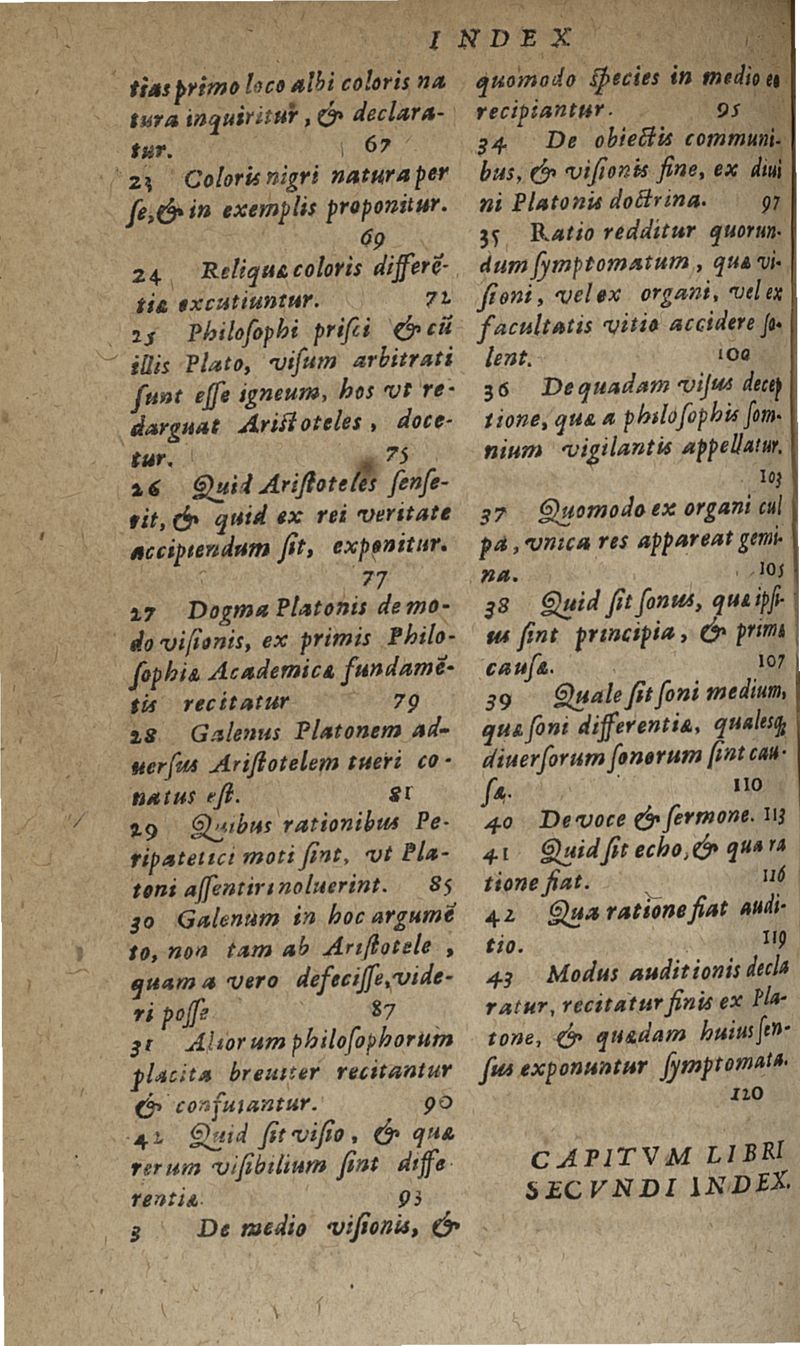 INDEX
tias primo loco albi coloris na
tura inquiritur, & declara-
tur. 67
23 Coloris nigri natura per
se, & in exemplis proponitur.
69
24 Reliquæ coloris differẽ-
tiæ excutiuntur. 72
25 Philosophi prisci & cũ
illis Plato, visum arbitrati
sunt esse igneum, hos vt re-
darguat Aristoteles, doce-
tur. 75
26 Quid Aristoteles sense-
rit, & quid ex rei veritate
accipiendum sit, exponitur.
77
27 Dogma Platonis de mo-
do visionis, ex primis Philo-
sophiæ Academicæ fundamẽ-
tis recitatur 79
28 Galenus Platonem ad-
uersus Aristotelem tueri co-
natus est. 81
29 Quibus rationibus Pe-
ripatetici moti sint, vt Pla-
toni assentiri noluerint. 85
30 Galenum in hoc argumẽ
to, non tam ab Aristotele,
quam a vero defecisse, vide-
ri posse 87
31 Aliorum philosophorum
placita breuiter recitantur
& confutantur. 90
42 Quid sit visio, & quæ
rerum visibilium sint diffe
rentiæ. 93
3 De medio visionis, &
quomodo species in medio eo
recipiantur. 95
34 De obiectis communi-
bus, & visionis fine, ex diui
ni Platonis doctrina. 97
35 Ratio redditur quorun-
dum symptomatum, quæ vi-
sioni, vel ex organi, vel ex
facultatis vitio accidere so-
lent. 100
36 De quadam visus decep
tione, quæ a philosophis som-
nium vigilantis appellatur.
103
37 Quomodo ex organi cul
pa, vnica res appareat gemi-
na. 105
38 Quid sit sonus, quæ ipsi-
us sint principia, & primæ
causæ. 107
39 Quale sit soni medium,
quæ soni differentiæ, qualesq;
diuersorum sonorum sint cau-
sæ. 110
40 De voce & sermone. 113
41 Quid sit echo, & qua ra
tione fiat. 116
42 Qua ratione fiat audi-
tio. 119
43 Modus auditionis decla
ratur, recitatur finis ex Pla-
tone, & quædam huius sen-
sus exponuntur symptomata.
120
CAPITVM LIBRI
SECVNDI INDEX.